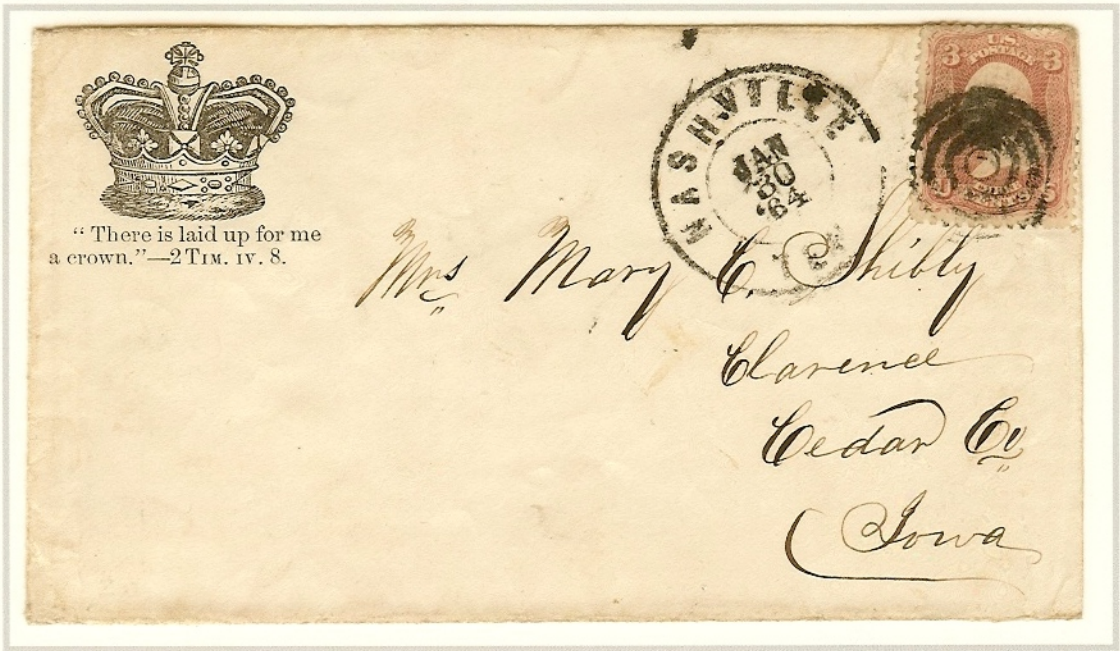 "There is laid up for me
a crown."—2 TIM. IV. 8.
NASHVILLE
JAN
30
'64
3 U.S. POSTAGE 3
CENTS
Mrs Mary C. Shibly
Clarence
Cedar Co
Iowa